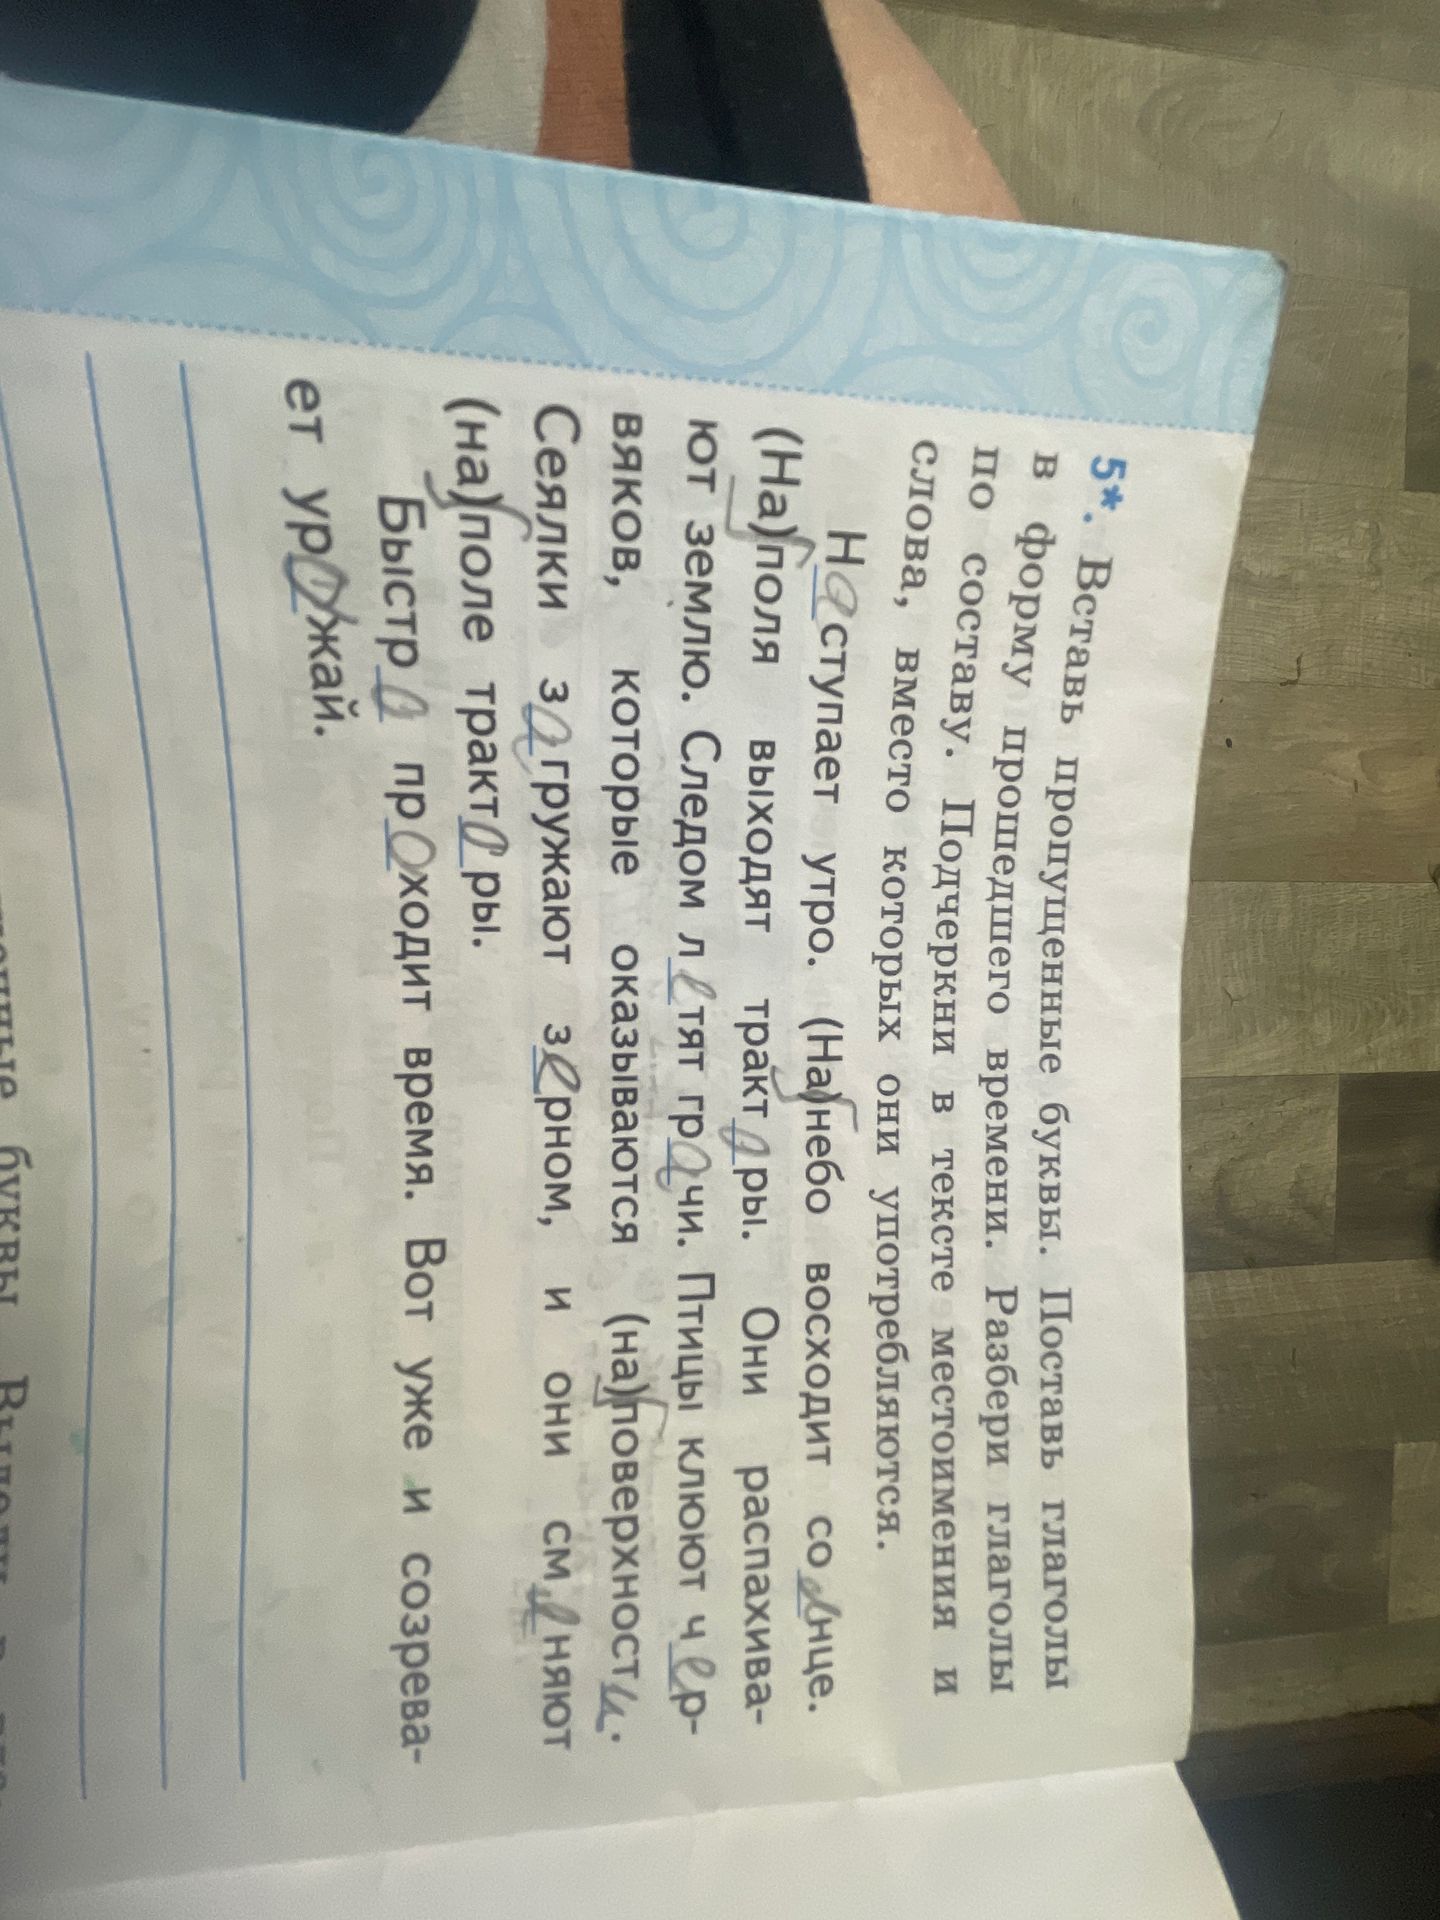 5*. Вставь пропущенные буквы. Поставь глаголы
в форму прошедшего времени. Разбери глаголы
по составу. Подчеркни в тексте местоимения и
слова, вместо которых они употребляются.
Наступает утро. (На)небо восходит солнце.
(На)поля выходят тракторы. Они распахива-
ют землю. Следом летят грачи. Птицы клюют чер-
вяков, которые оказываются (на)поверхности.
Сеялки загружают зерном, и они сменяют
(на)поле тракторы.
Быстро проходит время. Вот уже и созрева-
ет урожай.
буквы.